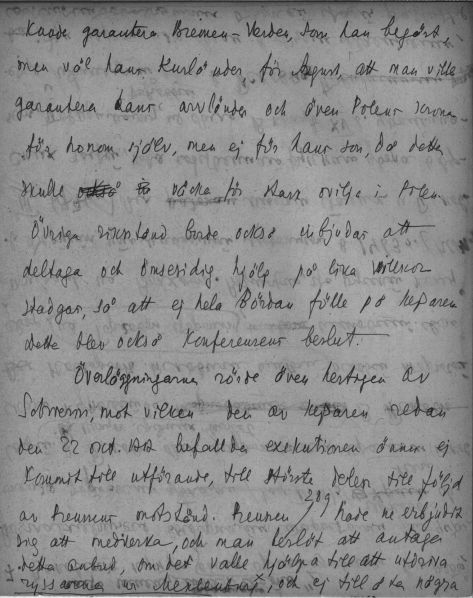 kunde garantera Bremen-Verden, som han begärt,
men väl hans kurländer, för August, att man ville
garantera hans arvländer och även Polens krona
för honom själv, men ej för hans son, då detta
skulle väcka för stark ovilja i Polen.
Övriga riksstånd borde också inbjudas att
deltaga och ömsesidig hjälp på lika villkor
stadgas, så att ej hela bördan fölle på kejsaren
Detta blev också Konferensens beslut.
Överläggningarna rörde även hertigen av
Schwerin, mot vilken den av kejsaren redan
den 22 okt. befallda exekutionen ännu ej
kommit till utförande, till största delen till följd
av Preussens motstånd. Preussen hade nu erbjudit
289
sig att medverka, och man beslöt att antaga
detta anbud, om det ville hjälpa till att utdriva
ryssarna ur Mecklenburg x, och ej till öka några